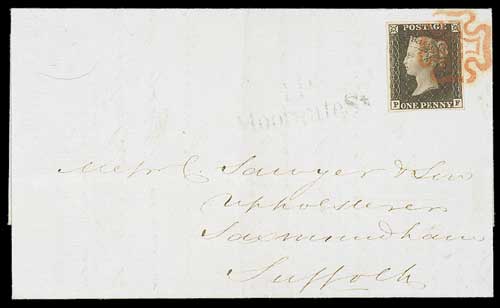 POSTAGE
ONE PENNY
P F
Moorgate St
Messrs. Sawyer & Son
Upholsterers
Saxmundham
Suffolk